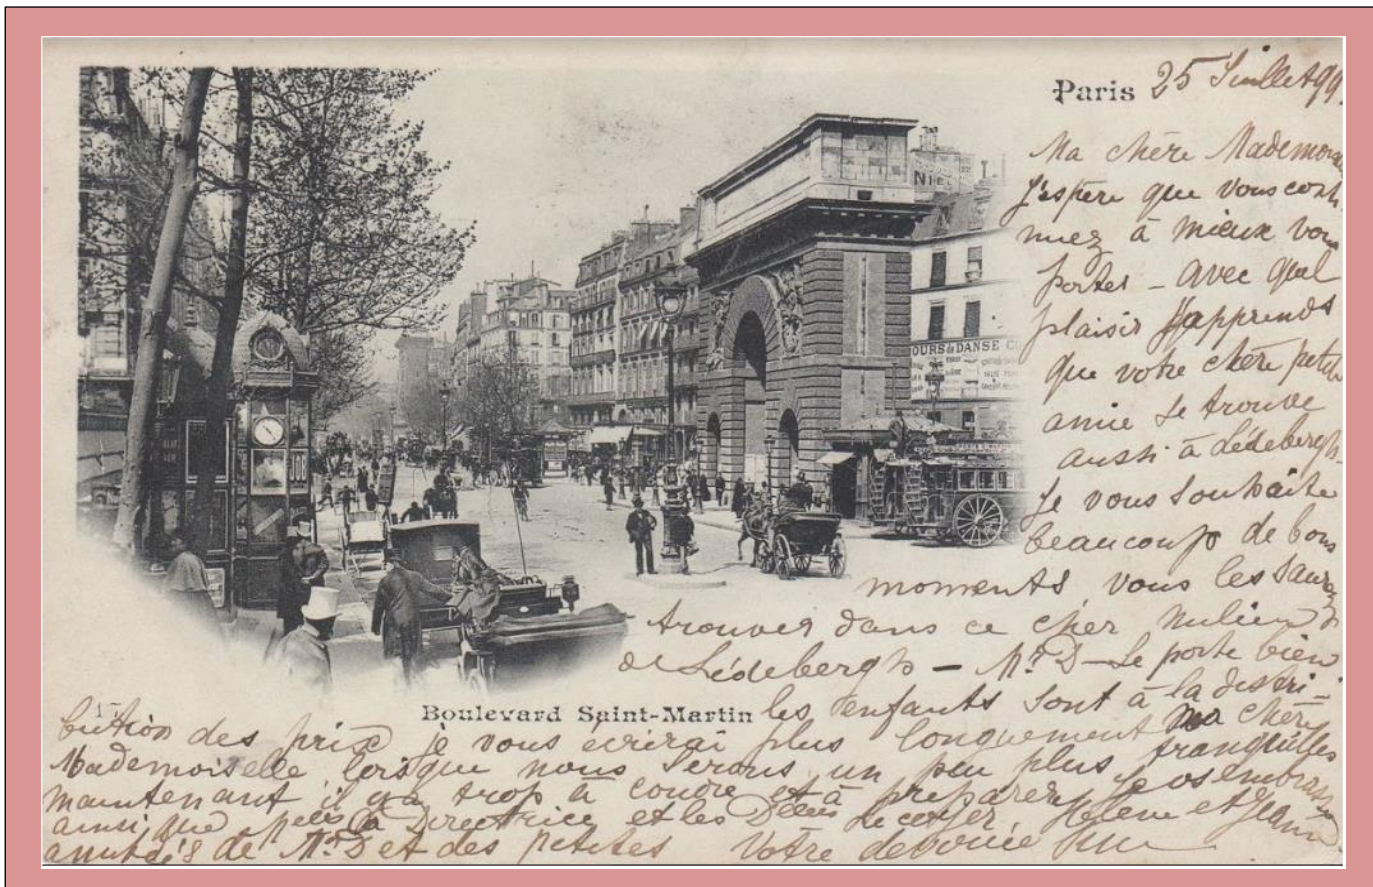 Paris 25 Juillet 99
Ma chère Mademoi
j'espère que vous conti
nuez à mieux vous
porter – avec quel
plaisir j'apprends
que votre chère petite
amie se trouve
aussi à Lédebergh.
Je vous souhaite
beaucoup de bons
moments, vous les saurez
trouver dans ce cher milieu
de Lédebergh – Mr D – se porte bien
les enfants sont à la distri-
bution des prix je vous écrirai plus longuement ma chère
Mademoiselle, lorsque nous serons un peu plus tranquilles
maintenant il y a trop à coudre et à préparer. Je
ainsi que la Directrice et les Hélène et Jeanne
amitiés de Mr D et des petites Votre dévouée
Boulevard Saint-Martin
NIEL
OURS de DANSE C